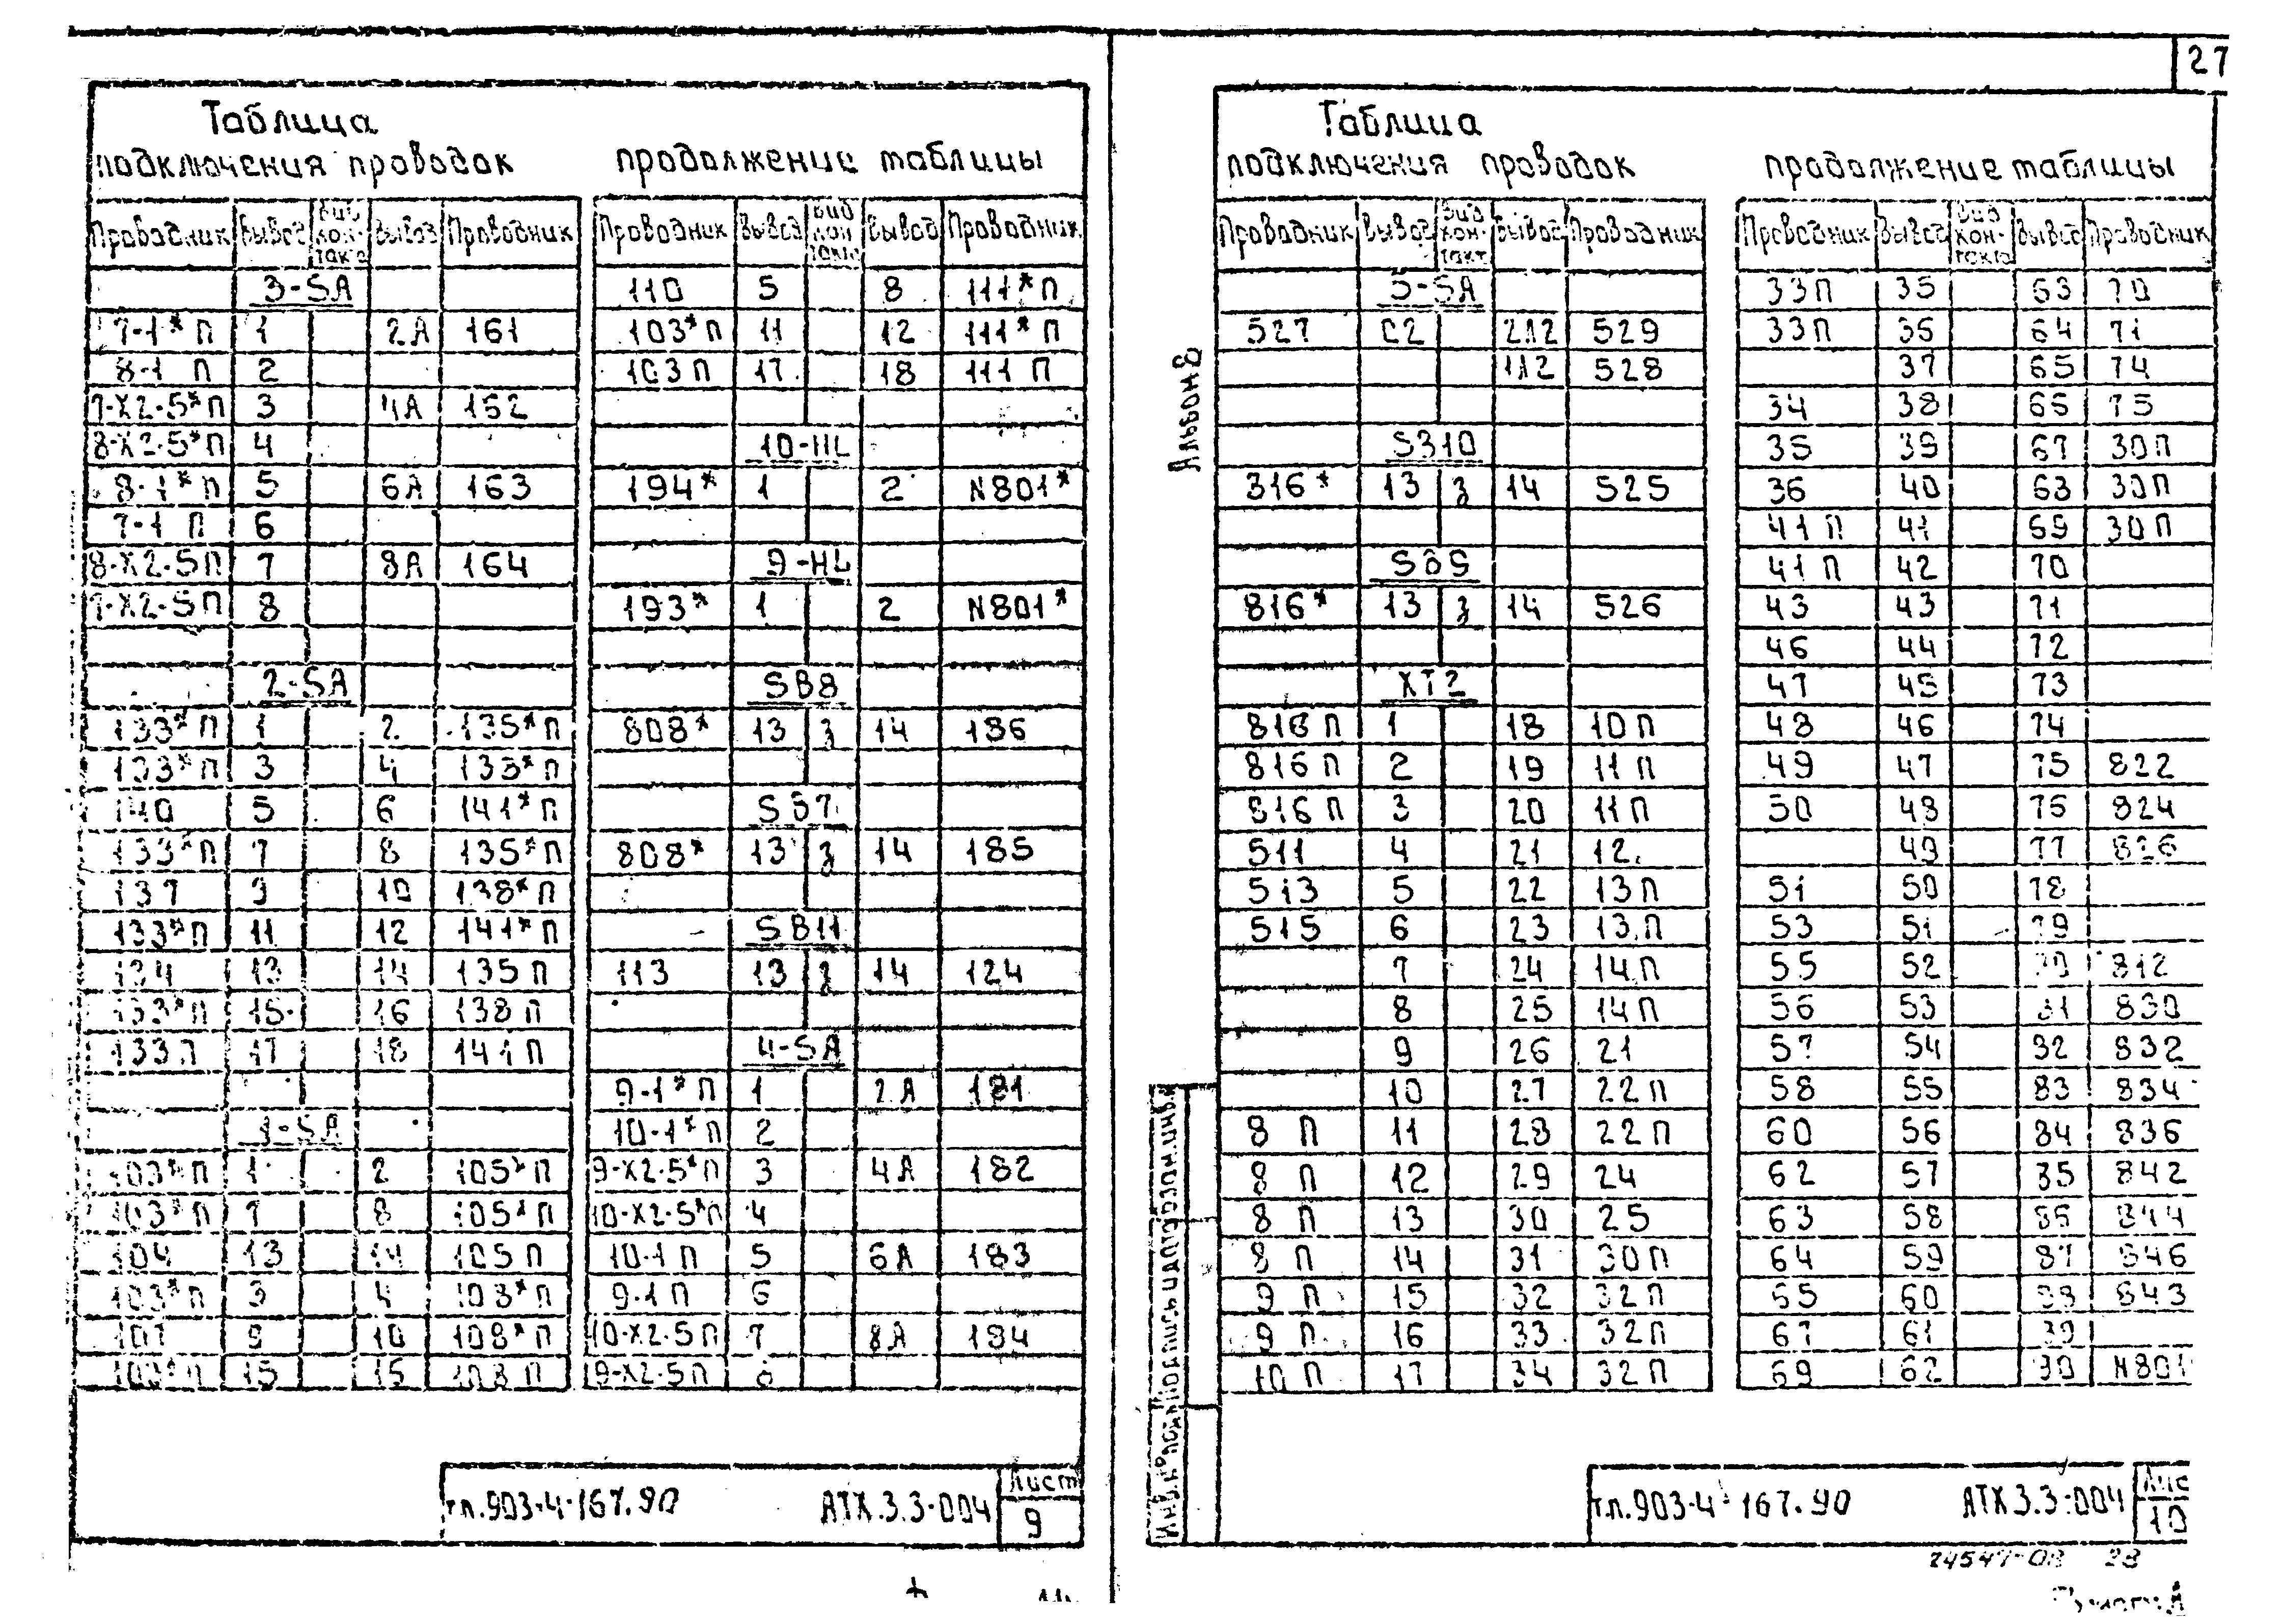 27
Таблица
подключения проводок
Проводник Вывод Вид контакта Вывод Проводник
3-SA
7-1* П 1 2А 161
8-1 П 2
7-Х2-5* П 3 4А 162
8-Х2-5* П 4
8-1* П 5 6А 163
7-1 П 6
8-Х2-5 П 7 8А 164
7-Х2-5 П 8
2-SA
133* П 1 2 135* П
133* П 3 4 133* П
140 5 6 141* П
133* П 7 8 135* П
137 9 10 138* П
133* П 11 12 141* П
134 13 14 135 П
133* П 15 16 138 П
133 П 17 18 141 П
1-SA
103* П 1 2 105* П
103* П 7 8 105* П
104 13 14 105 П
103* П 3 4 108* П
107 9 10 108* П
103* П 15 15 108 П
продолжение таблицы
Проводник Вывод Вид контакта Вывод Проводник
110 5 8 111* П
103* П 11 12 111* П
103 П 17 18 111 П
10-HL
194* 1 2 N801*
9-HL
193* 1 2 N801*
SB8
808* 13 з 14 186
SB7
808* 13 з 14 185
SB11
113 13 з 14 124
4-SA
9-1* П 1 2А 181
10-1* П 2
9-Х2-5* П 3 4А 182
10-Х2-5* П 4
10-1 П 5 6А 183
9-1 П 6
10-Х2-5 П 7 8А 184
9-Х2-5 П 8
т.п.903-4-167.90 АТХ.3.3-004 Лист
9
Таблица
подключения проводок
Проводник Вывод Вид контакт Вывод Проводник
5-SA
527 С2 2Л2 529
1Л2 528
S310
316* 13 з 14 525
SB9
816* 13 з 14 526
ХТ2
816 П 1 18 10 П
816 П 2 19 11 П
816 П 3 20 11 П
511 4 21 12
513 5 22 13 П
515 6 23 13 П
7 24 14 П
8 25 14 П
9 26 21
10 27 22 П
8 П 11 28 22 П
8 П 12 29 24
8 П 13 30 25
8 П 14 31 30 П
9 П 15 32 32 П
9 П 16 33 32 П
10 П 17 34 32 П
продолжение таблицы
Проводник Вывод Вид контакта Вывод Проводник
33 П 35 63 70
33 П 36 64 71
37 65 74
34 38 66 75
35 39 67 30 П
36 40 68 30 П
41 П 41 69 30 П
41 П 42 70
43 43 71
46 44 72
47 45 73
48 46 74
49 47 75 822
50 48 76 824
49 77 826
51 50 78
53 51 79
55 52 80 812
56 53 81 830
57 54 82 832
58 55 83 834
60 56 84 836
62 57 85 842
63 58 86 844
64 59 87 846
65 60 88 848
67 61 89
69 62 90 N801
Альбом 3
Инв.№ подл. Подпись и дата
т.п.903-4-167.90 АТХ.3.3-004 Лис
10
24547-03 28